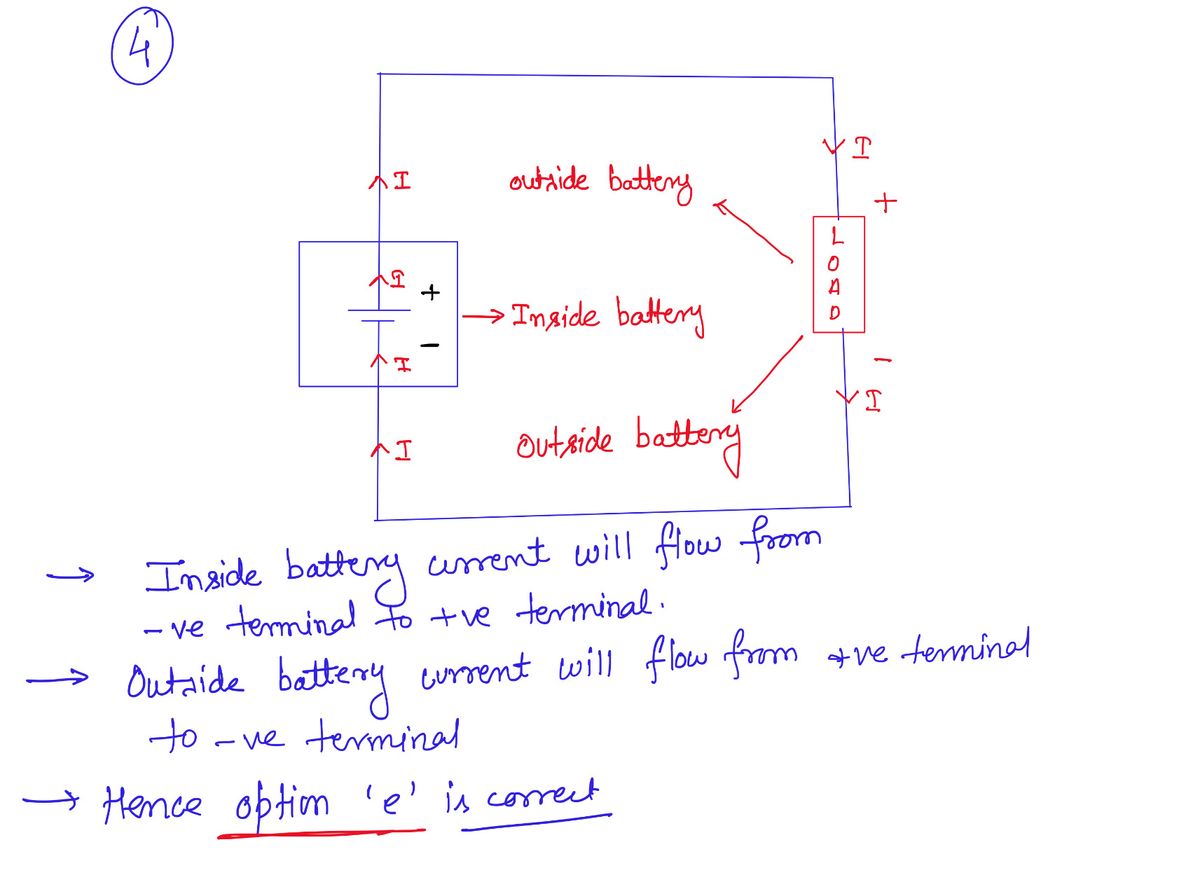 4
I
outside battery
I
+
L
O
A
D
I
+
→ Inside battery
-
I
-
I
I
Outside battery
→ Inside battery current will flow from
-ve terminal to +ve terminal.
→ Outside battery current will flow from +ve terminal
to -ve terminal
→ Hence option 'e' is correct